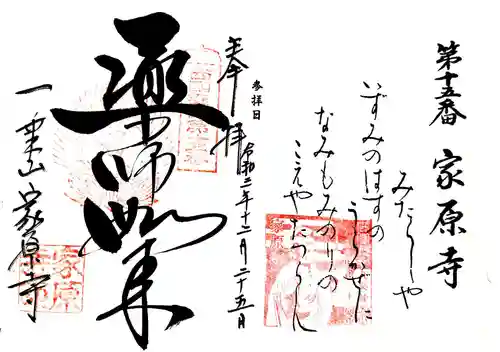 第十五番 家原寺
みたらしや
いずみのはすの
うらかぜに
なみもみのりの
こえやたつらん
参拝日
奉拝
令和二年十二月二十五日
薬師如来
一乗山家原寺